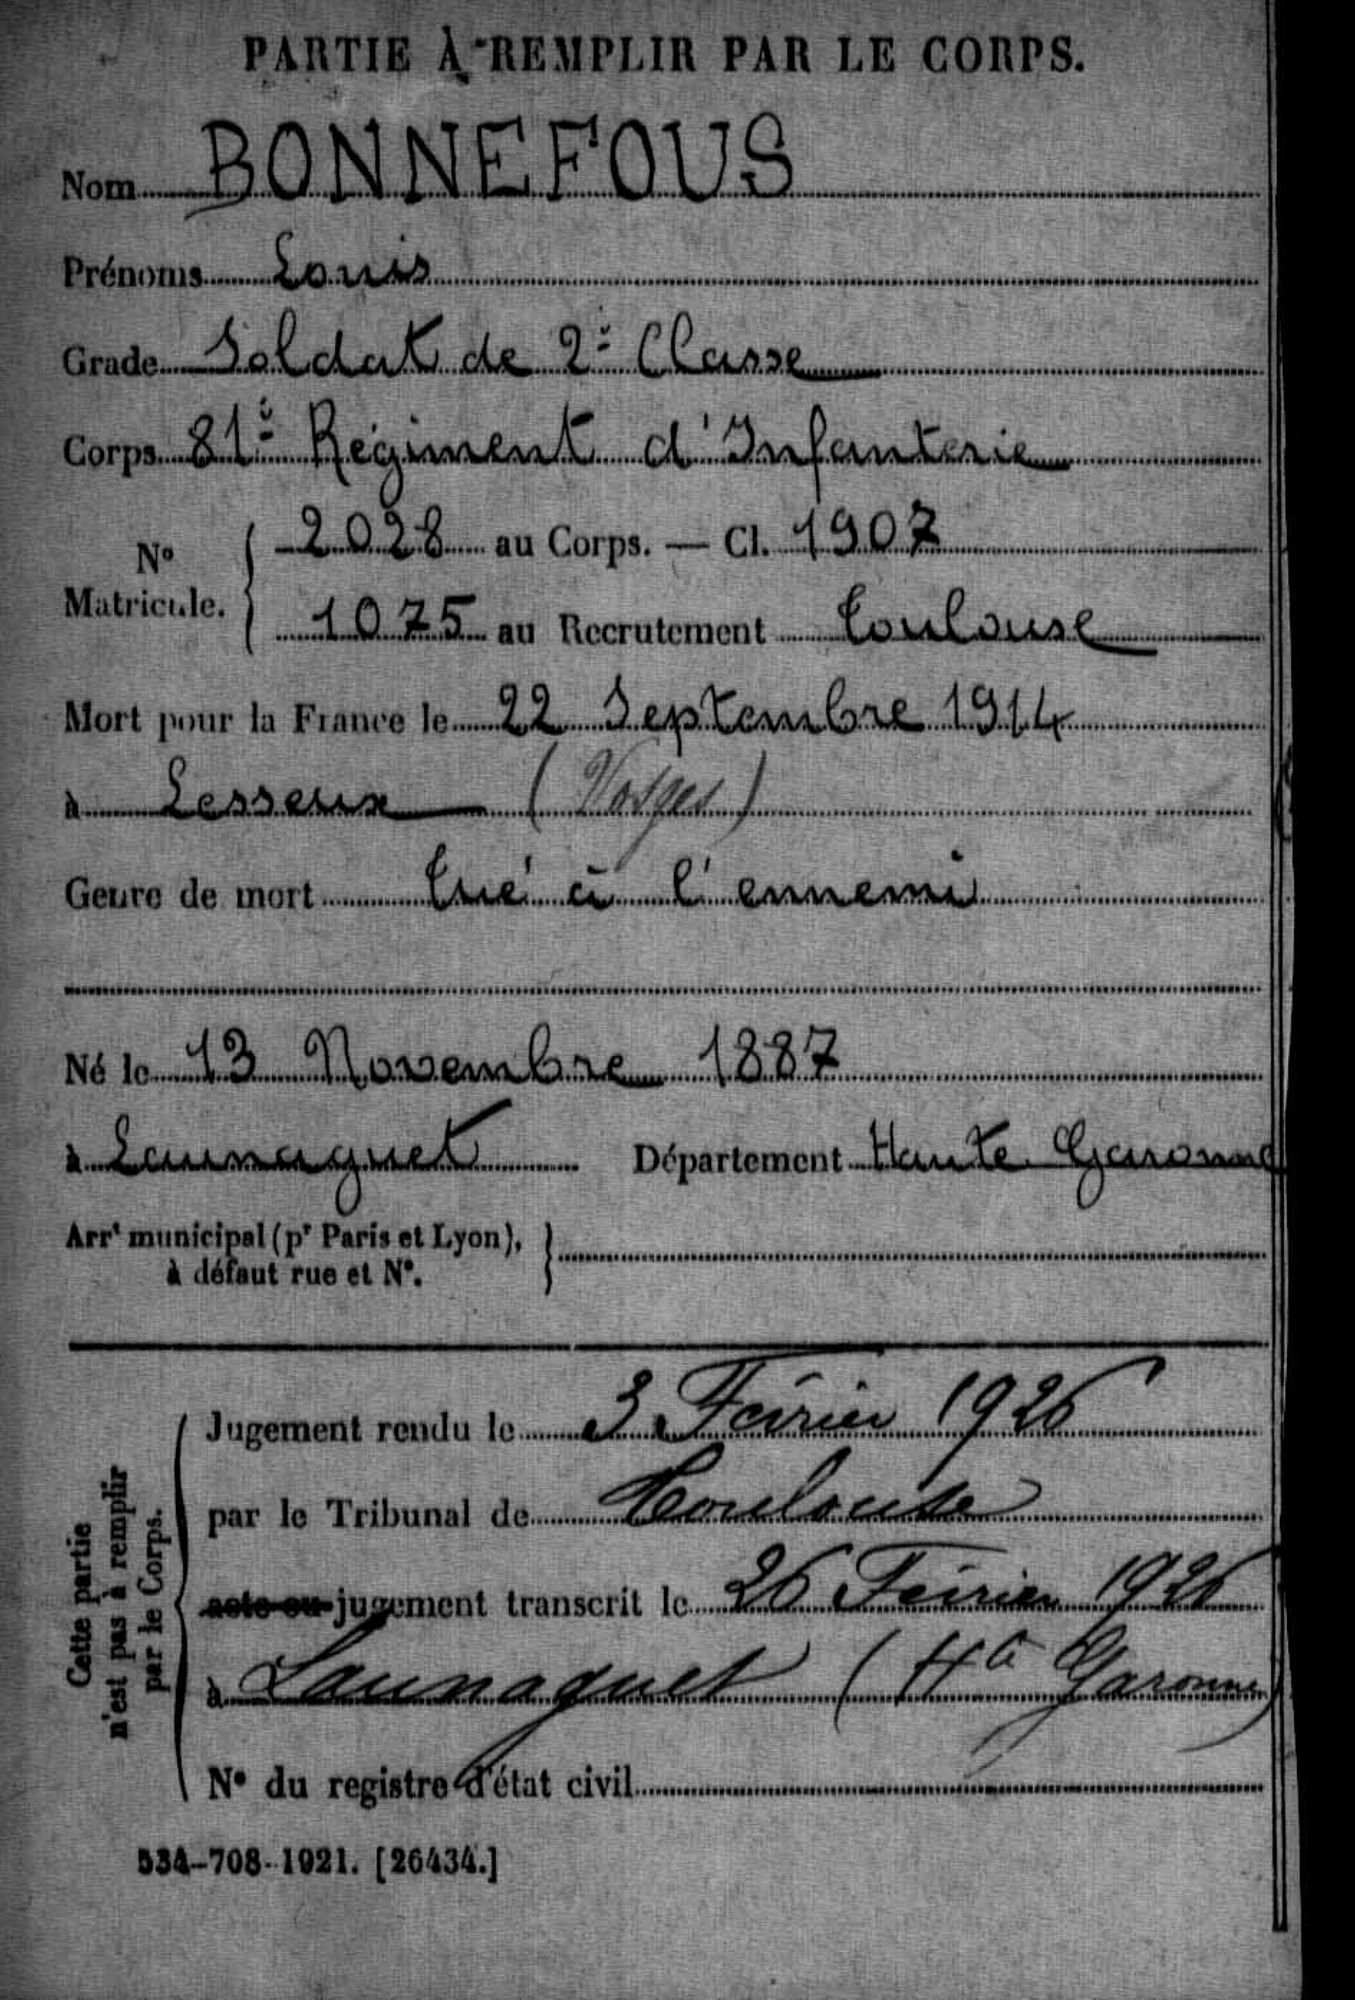 PARTIE À REMPLIR PAR LE CORPS.
Nom BONNEFOUS
Prénoms Louis
Grade Soldat de 2è Classe
Corps 81è Régiment d'Infanterie
N° Matricule. { 2028 au Corps. — Cl. 1907
1075 au Recrutement Toulouse
Mort pour la France le 22 Septembre 1914
à Lesseux (Vosges)
Genre de mort Tué à l'ennemi
Né le 13 Novembre 1887
à Launaguet Département Haute Garonne
Arrt municipal (pr Paris et Lyon), }
à défaut rue et N°.
Cette partie
n'est pas à remplir
par le Corps.
Jugement rendu le 3 Février 1926
par le Tribunal de Toulouse
acte ou jugement transcrit le 26 Février 1926
à Launaguet (Hte Garonne)
N° du registre d'état civil
534-708-1921. [26434.]